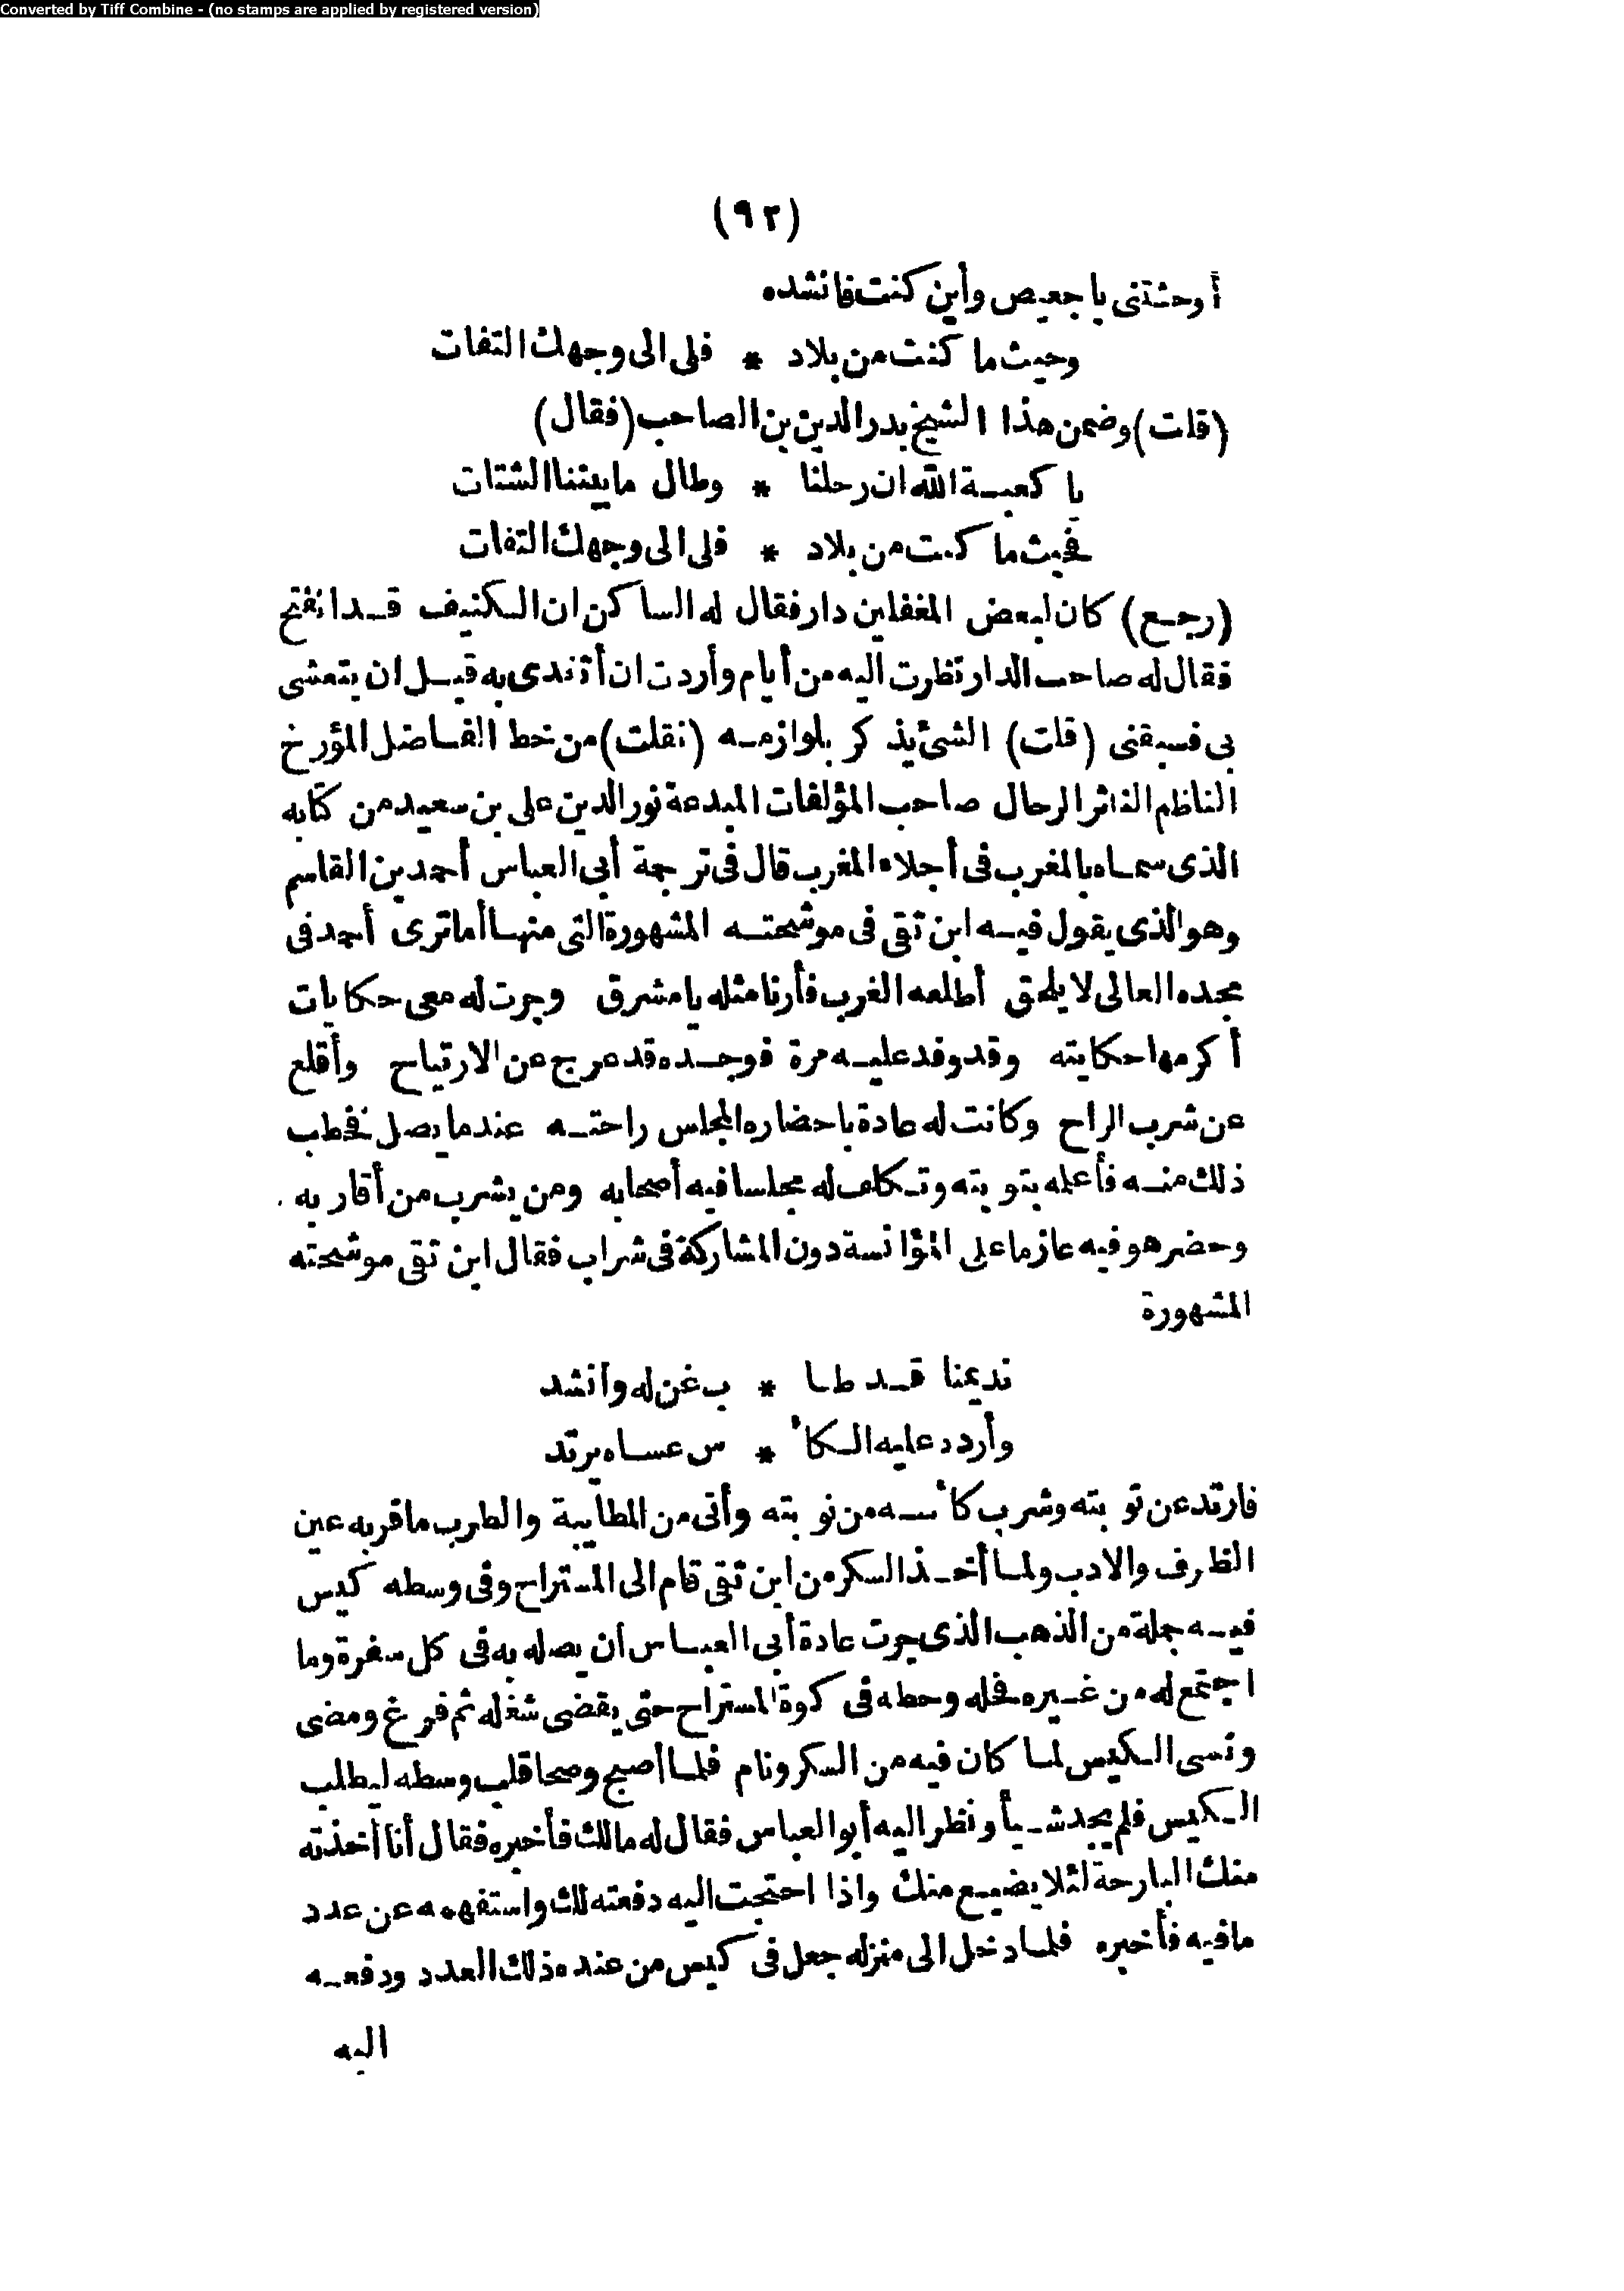 Converted by Tiff Combine - (no stamps are applied by registered version)
(٩٢)
أوحشتنى يا جعيص وأين كنت فانشده
وحيث ما كنت من بلاد * فلى الى وجهك التفات
(قلت) وضمن هذا الشيخ بدر الدين بن الصاحب (فقال)
يا كعبة الله ان رحلنا * وطال ما بيننا الشتات
فحيث ما كنت من بلاد * فلى الى وجهك التفات
(رجع) كان لبعض المغفلين دار فقال له الساكن ان الكنيف قد انفتح
فقال له صاحب الدار نظرت اليه من أيام وأردت ان أتغدى به قبل ان يتعشى
بى فسبقنى (قلت) الشئ يذكر بلوازمه (نقلت) من خط الفاضل المؤرخ
الناظم الناثر الرحال صاحب المؤلفات المبدعة نور الدين على بن سعيد من كتابه
الذى سماه بالمغرب فى أجلاء المغرب قال فى ترجمة أبى العباس أحمد بن القاسم
وهو الذى يقول فيه ابن تقى فى موشحته المشهورة التى منها أما ترى أحمد فى
مجده العالى لا يلحق أطلعه الغرب فأرنا مثله يا مشرق وجرت له معى حكايات
أكرمها حكايته وقد وفد عليه مرة فوجده قد عرج عن الارتياح وأقلع
عن شرب الراح وكانت له عادة باحضاره المجلس راحته عندما يصل فخطب
ذلك منه فأعلمه بتوبته وتكلف له مجلسا فيه أصحابه ومن يشرب من أقاربه
وحضر هو فيه عازما على المؤانسة دون المشاركة فى شراب فقال ابن تقى موشحته
المشهورة
نديمنا قد طا * ب غن له وأنشد
وأردد عليه الكأ * س عساه يرتد
فارتد عن توبته وشرب كأسه من نوبته وأتى من المطايبة والطرب ما قر به عين
الظرف والادب ولما أخذ السكر من ابن تقى قام الى المستراح وفى وسطه كيس
فيه جملة من الذهب الذى جرت عادة أبى العباس أن يصله به فى كل سفرة وما
اجتمع له من غيره فحله وحطه فى كوة المستراح حتى يقضى شغله ثم فرغ ومضى
ونسى الكيس لما كان فيه من السكر ونام فلما أصبح وصحا قلب وسطه ليطلب
الكيس فلم يجد شيأ ونظر اليه أبو العباس فقال له مالك فأخبره فقال أنا أخذته
منك البارحة لئلا يضيع منك واذا احتجت اليه دفعته لك واستفهمه عن عدد
ما فيه فأخبره فلما دخل الى منزله جعل فى كيس من عنده ذلك العدد ودفعه
اليه